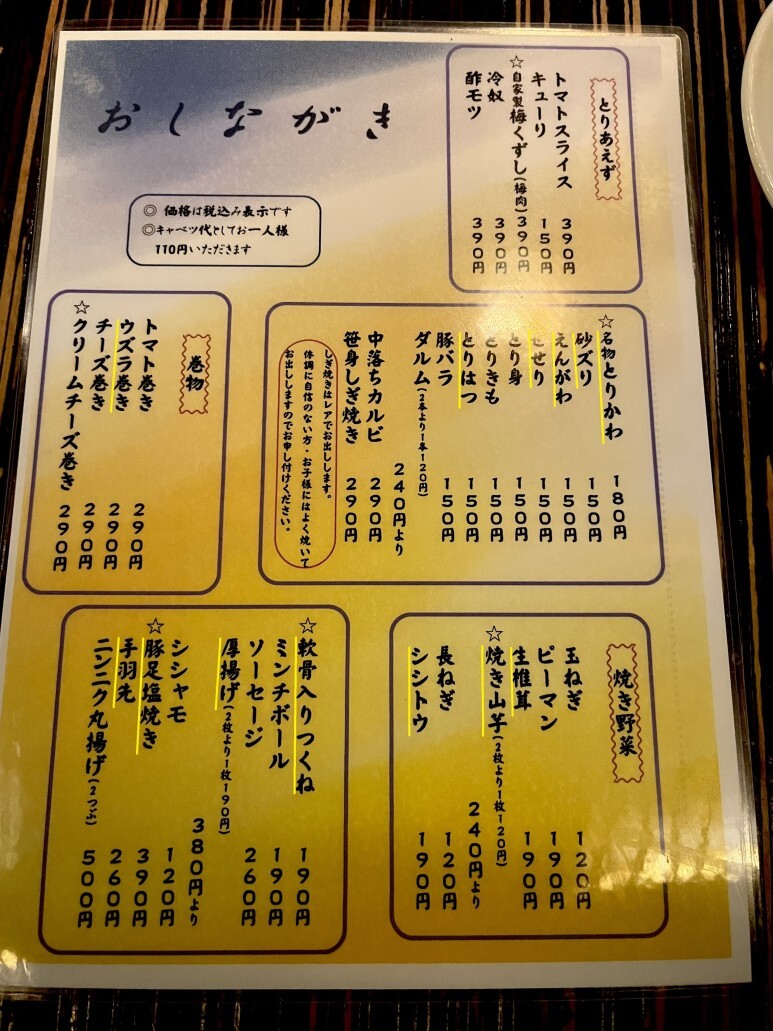 おしながき
◎ 価格は税込み表示です
◎キャベツ代としてお一人様
110円いただきます
とりあえず
トマトスライス 390円
キューリ 150円
☆自家製梅くずし(梅肉) 390円
冷奴 390円
酢モツ 390円
☆名物とりかわ 180円
砂ズリ 150円
えんがわ 150円
せせり 150円
とり身 150円
とりきも 150円
とりはつ 150円
豚バラ 150円
ダルム(2本より1本120円) 240円より
中落ちカルビ 290円
笹身しぎ焼き 290円
しぎ焼きはレアでお出しします。
体調に自信のない方・お子様にはよく焼いて
お出ししますのでお申し付けください。
巻物
トマト巻き 290円
ウズラ巻き 290円
チーズ巻き 290円
☆クリームチーズ巻き 290円
焼き野菜
玉ねぎ 120円
ピーマン 190円
生椎茸 190円
☆焼き山芋(2枚より1枚120円) 240円より
長ねぎ 120円
シシトウ 190円
☆軟骨入りつくね 190円
ミンチボール 190円
ソーセージ 260円
厚揚げ(2枚より1枚190円) 380円より
シシャモ 120円
☆豚足塩焼き 390円
手羽先 260円
ニンニク丸揚げ(2つぶ) 500円